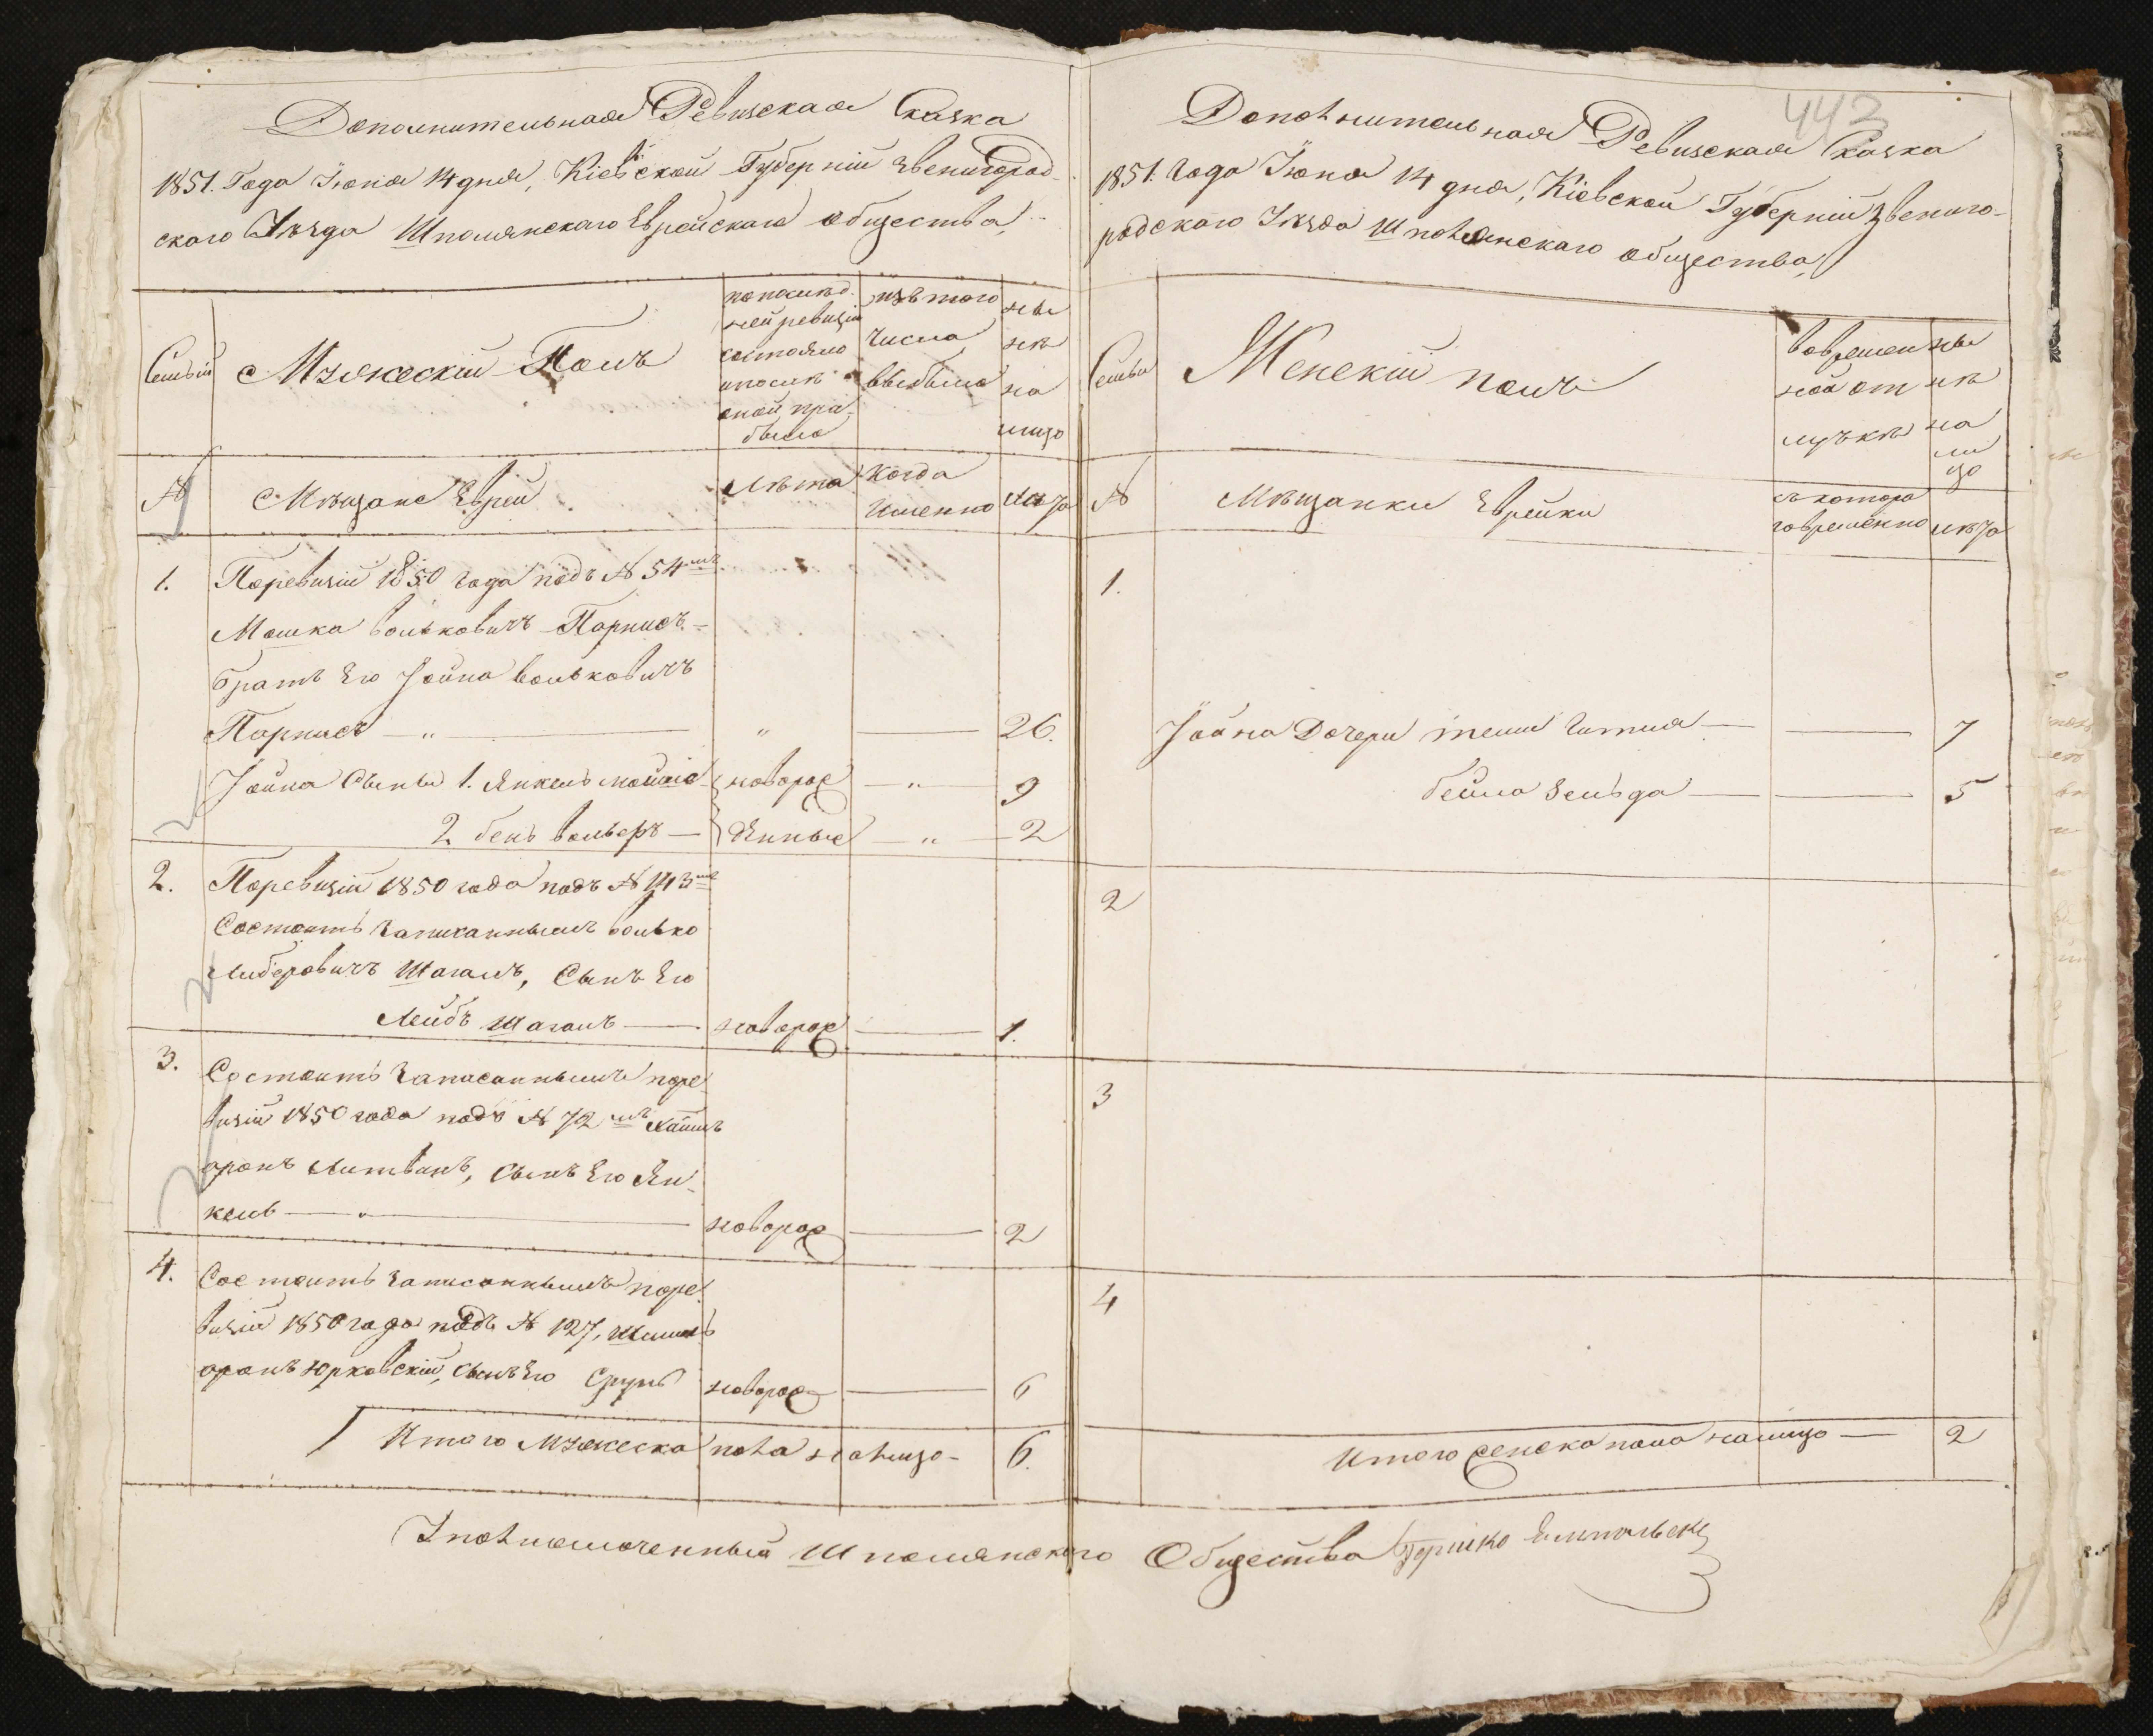 Дополнительная Ревизская Сказка
1851. Года Іюня 14 дня, Кіевской Губерніи Звенигород-
ского Уѣзда Шполянскаго Еврейскаго общества,
Семьи
Мужескій Полъ
по послѣд-
ней ревизіи
состояло
и послѣ
оной при-
было
изъ того
числа
выбыло
ны
нѣ
на
лицо
№
Мѣщане Евреи
Лѣта
Когда
именно
Лѣта
1.
По ревизіи 1850 года подъ № 54мъ
Мошка Вольковичъ Парписъ
братъ Его Іойна Вольковичъ
Парписъ — „ — „ — 26.
Іойна Сыны 1. Янкель Мойше новорож — „ — 9
2 бенъ Вольфъ — денные — „ — 2
2.
По ревизіи 1850 года подъ № 143мъ
Состоитъ записаннымъ Волько
Либеровичъ Шагалъ, Сынъ Его
Лейбъ Шагалъ — новорож — 1.
3.
Состоитъ Записаннымъ по ре
визіи 1850 года подъ № 72мъ Хаимъ
аронъ Литвинъ, Сынъ Его Ян-
кель — „ — новорож — 2
4.
Состоитъ Записаннымъ по ре
визіи 1850 года подъ № 127, Шмиль
аронъ Юрковскій, Сынъ Его Сруль новорож — 6
Итого Мужеска пола на лицо — 6.
443
Дополнительная Ревизская Сказка
1851. Года Іюня 14 дня, Кіевской Губерніи Звениго-
родскаго Уѣзда Шполянскаго общества,
Семьи
Женскій полъ
во времен
ной от
лучкѣ
ны
нѣ
на
ли
цо
№
Мѣщанки Еврейки
съ котора
го времени
лѣта
1.
Іойна Дочери Гитля — — 7
бейла Зельда — — 5
2
3
4
Итого женска пола на лицо — 2
Уполномоченный Шполянскаго Общества Гершко